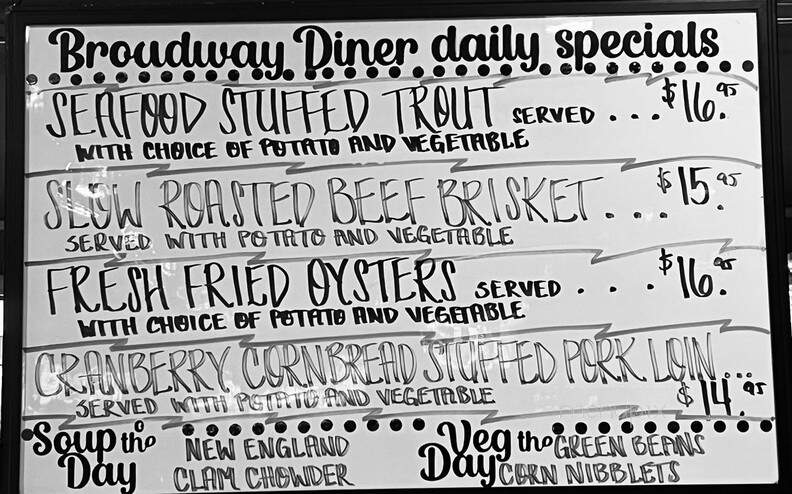 Broadway Diner daily specials
SEAFOOD STUFFED TROUT SERVED ... $16.95
WITH CHOICE OF POTATO AND VEGETABLE
SLOW ROASTED BEEF BRISKET .... $15.95
SERVED WITH POTATO AND VEGETABLE
FRESH FRIED OYSTERS SERVED .... $16.95
WITH CHOICE OF POTATO AND VEGETABLE
CRANBERRY CORNBREAD STUFFED PORK LOIN...
SERVED WITH POTATO AND VEGETABLE $14.95
Soup o the Day NEW ENGLAND
CLAM CHOWDER
Veg the Day GREEN BEANS
CORN NIBBLETS